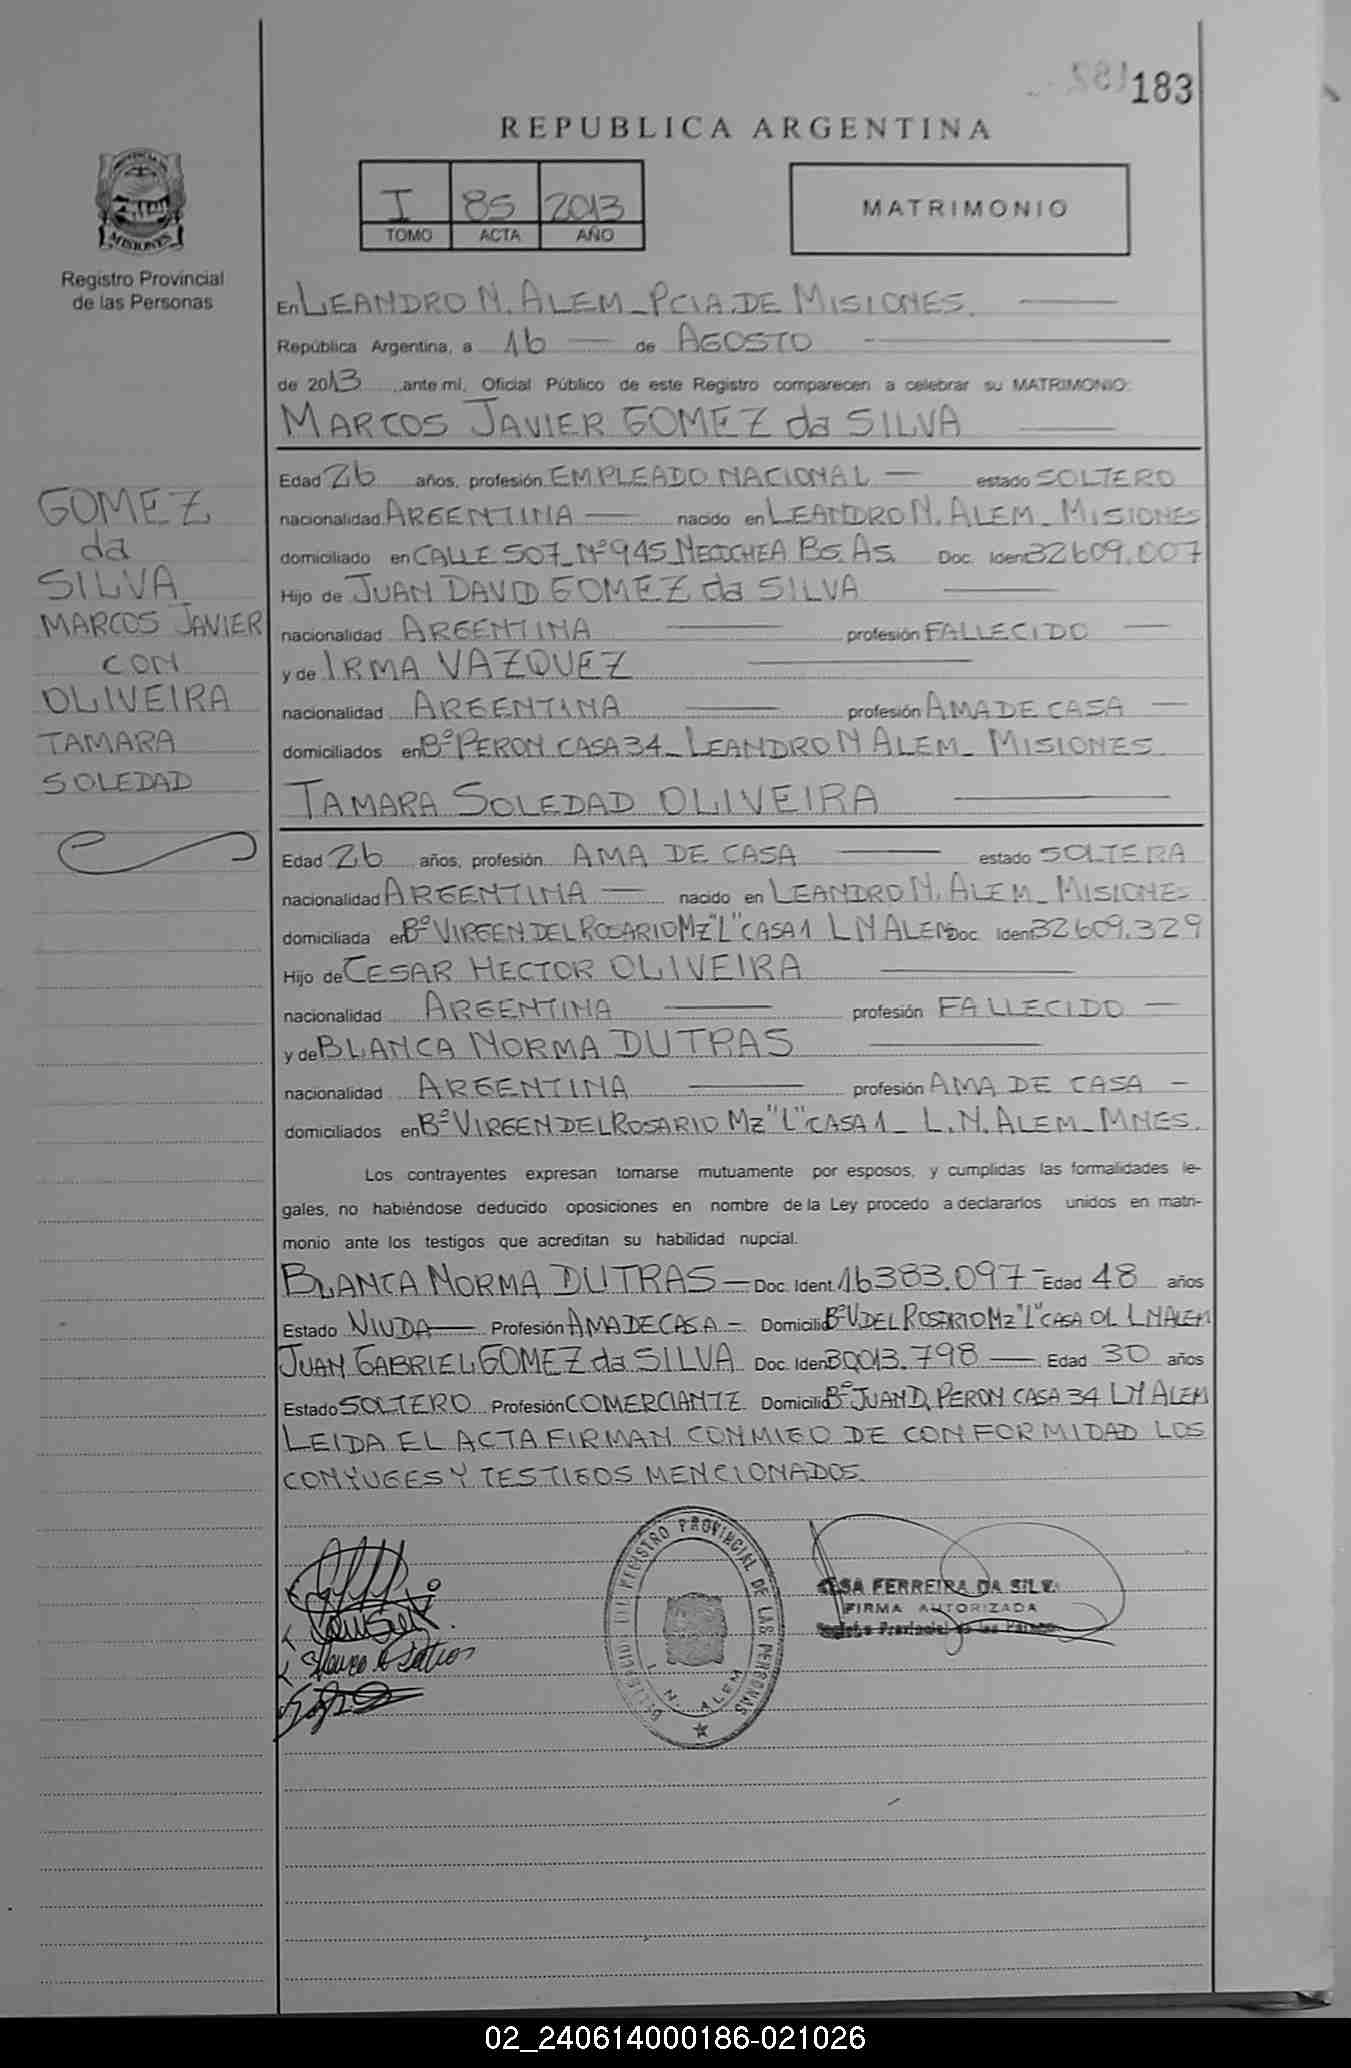 183
REPUBLICA ARGENTINA
PROVINCIA DE
MISIONES
Registro Provincial
de las Personas
I 85 2013
TOMO ACTA AÑO
MATRIMONIO
En LEANDRO N. ALEM_PCIA.DE MISIONES.
República Argentina, a 16 de AGOSTO
de 2013 ante mí, Oficial Público de este Registro comparecen a celebrar su MATRIMONIO:
MARCOS JAVIER GOMEZ da SILVA
Edad 26 años, profesión EMPLEADO NACIONAL — estado SOLTERO
nacionalidad ARGENTINA — nacido en LEANDRO N. ALEM_MISIONES
domiciliado en CALLE 507_Nº945_NECOCHEA BS.AS. Doc. Ident 32609.007
Hijo de JUAN DAVID GOMEZ da SILVA
nacionalidad ARGENTINA — profesión FALLECIDO —
y de IRMA VAZQUEZ
nacionalidad ARGENTINA — profesión AMA DE CASA —
domiciliados en Bº PERON CASA 34_LEANDRO N ALEM_MISIONES
TAMARA SOLEDAD OLIVEIRA
Edad 26 años, profesión AMA DE CASA — estado SOLTERA
nacionalidad ARGENTINA — nacido en LEANDRO N. ALEM_MISIONES
domiciliada en Bº VIRGEN DEL ROSARIO MZ"L" CASA 1 L N ALEM Doc. Ident 32609.329
Hijo de CESAR HECTOR OLIVEIRA
nacionalidad ARGENTINA — profesión FALLECIDO —
y de BLANCA NORMA DUTRAS
nacionalidad ARGENTINA — profesión AMA DE CASA -
domiciliados en Bº VIRGEN DEL ROSARIO MZ"L" CASA 1_L.N. ALEM_MNES.
Los contrayentes expresan tomarse mutuamente por esposos, y cumplidas las formalidades le-
gales, no habiéndose deducido oposiciones en nombre de la Ley procedo a declararlos unidos en matri-
monio ante los testigos que acreditan su habilidad nupcial.
BLANCA NORMA DUTRAS — Doc. Ident. 16383.097 - Edad 48 años
Estado VIUDA — Profesión AMA DE CASA - Domicilio Bº V DEL ROSARIO MZ"L" CASA 01 L N ALEM
JUAN GABRIEL GOMEZ da SILVA Doc. Ident 30013.798 — Edad 30 años
Estado SOLTERO Profesión COMERCIANTE Domicilio Bº JUAN D, PERON CASA 34 LN ALEM
LEIDA EL ACTA FIRMAN CONMIGO DE CONFORMIDAD LOS
CONYUGES Y TESTIGOS MENCIONADOS.
GOMEZ
da
SILVA
MARCOS JAVIER
CON
OLIVEIRA
TAMARA
SOLEDAD
REGISTRO PROVINCIAL DE LAS PERSONAS
N. ALEM
FERREIRA DA SILV
FIRMA AUTORIZADA
02_240614000186-021026